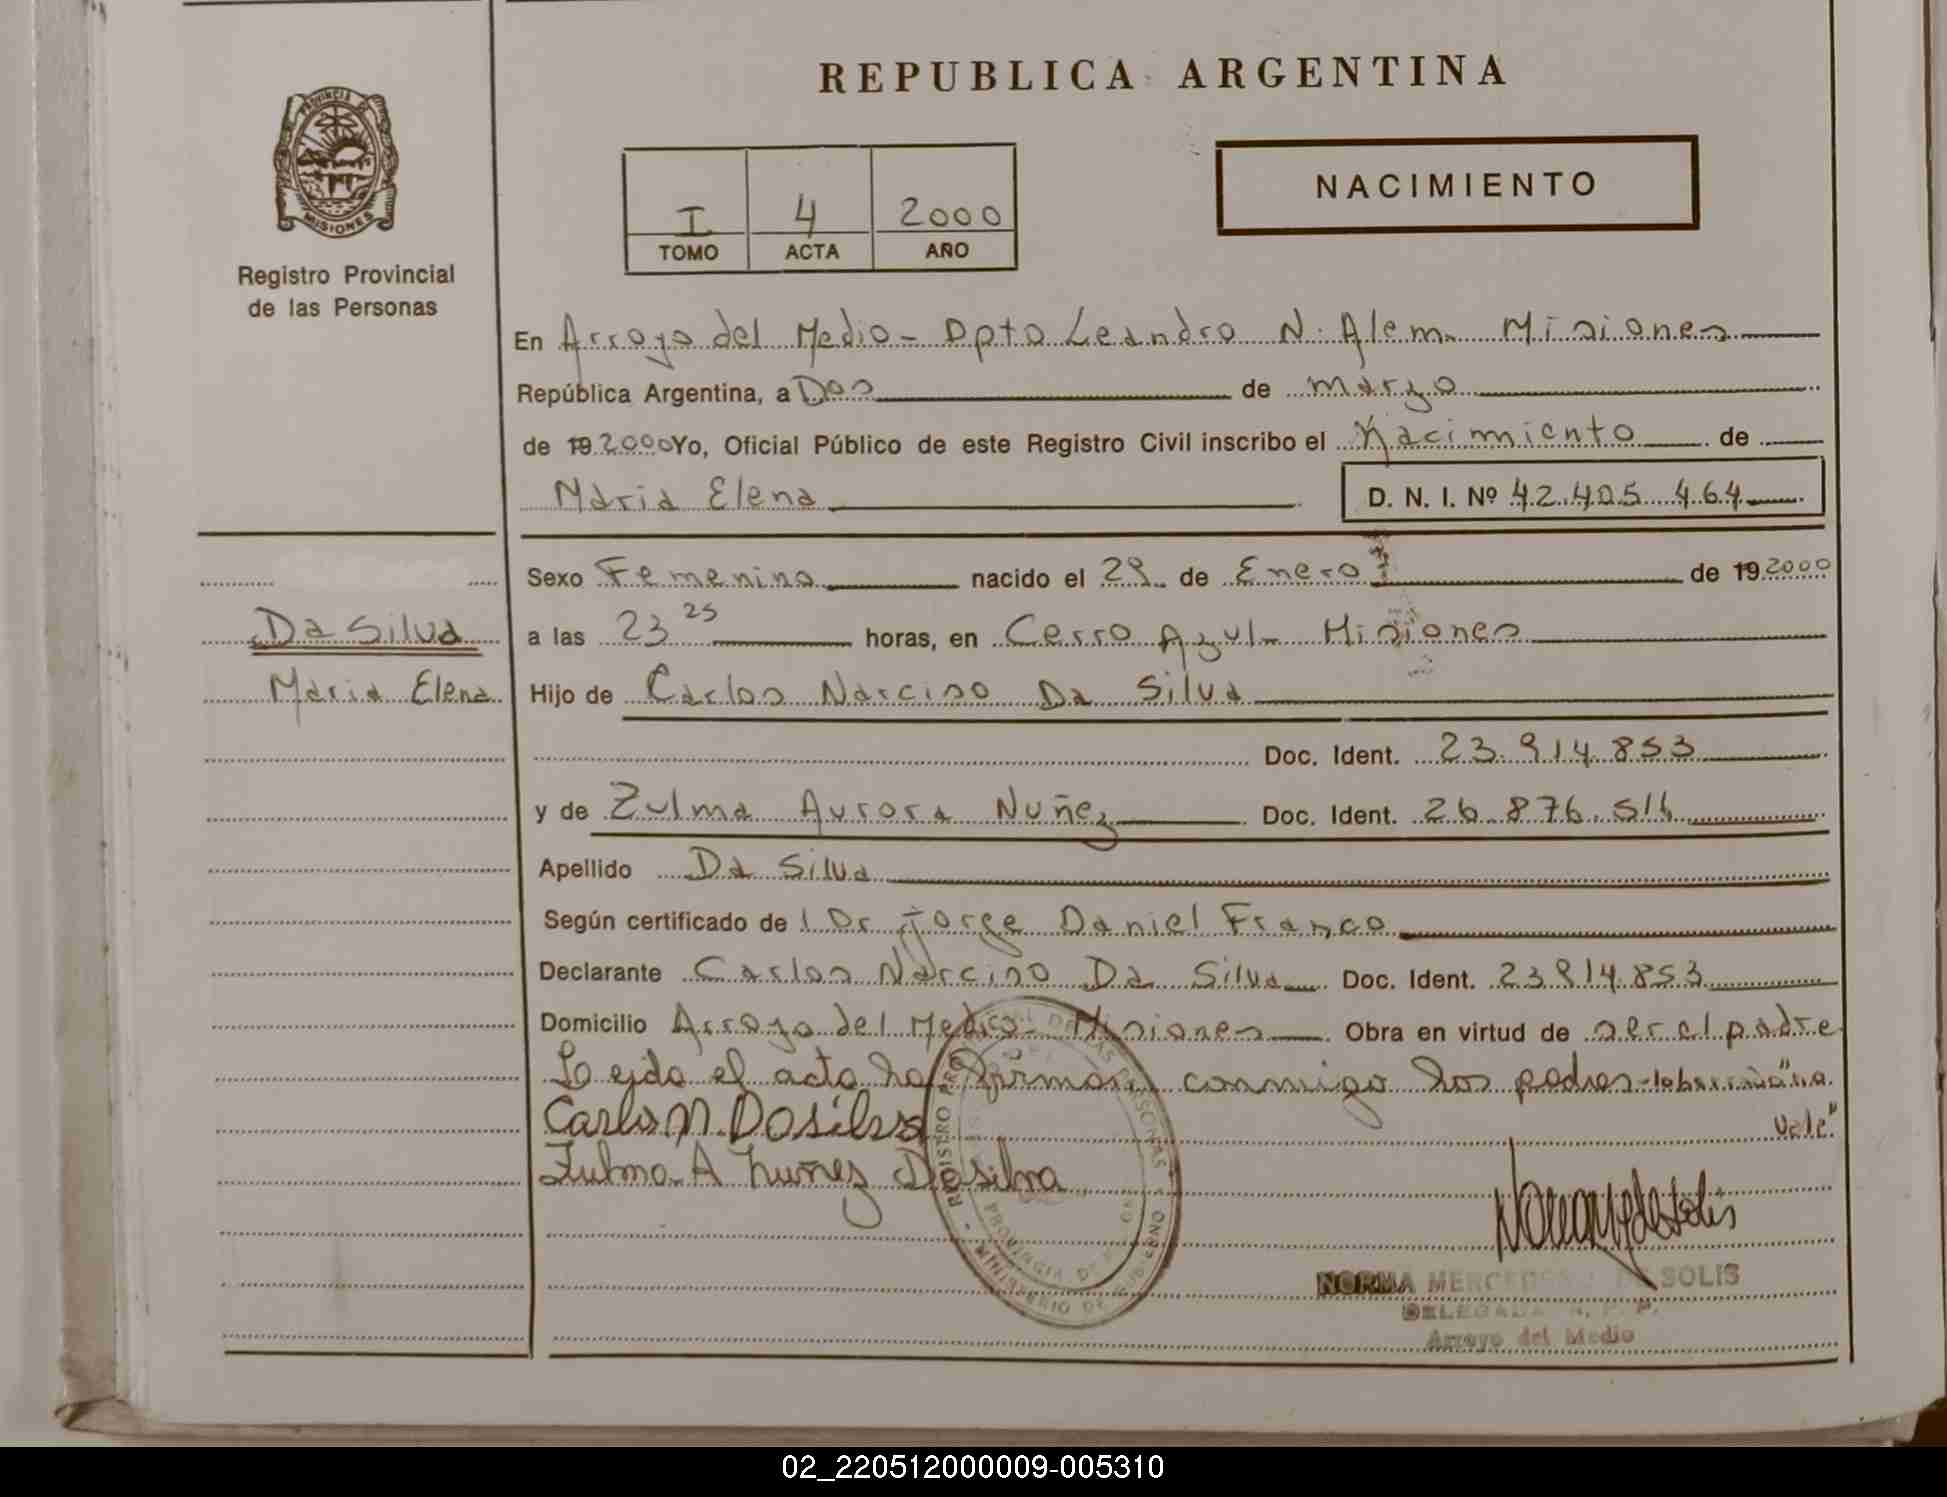 REPUBLICA ARGENTINA
PROVINCIA DE
MISIONES
Registro Provincial
de las Personas
I 4 2000
TOMO ACTA AÑO
NACIMIENTO
En Arroyo del Medio - Dpto Leandro N. Alem - Misiones
República Argentina, a Dos de marzo
de 19 2000 Yo, Oficial Público de este Registro Civil inscribo el Nacimiento de
Maria Elena D. N. I. Nº 42.405 464
Sexo Femenino nacido el 29 de Enero de 19 2000
Da Silva
a las 23 25 horas, en Cerro Azul - Misiones
Maria Elena
Hijo de Carlos Narciso Da Silva
Doc. Ident. 23.914.853
y de Zulma Aurora Nuñez Doc. Ident. 26.876.516
Apellido Da Silva
Según certificado de l Dr Jorge Daniel Franco
Declarante Carlos Narciso Da Silva Doc. Ident. 23.914.853
Domicilio Arroyo del Medio - Misiones Obra en virtud de ser el padre
Leida el acta la firman conmigo los padres
Vale"
Carlos N. Dasilva
Zulma A Nuñez Dasilva
NORMA MERCEDES DE SOLIS
DELEGADA R. P. P.
Arroyo del Medio
02_220512000009-005310